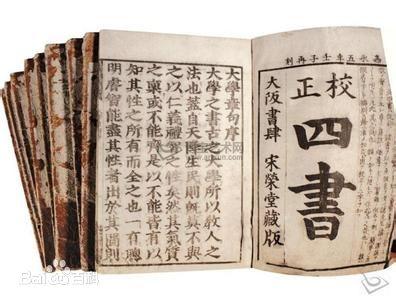 嘉永五年壬子再刻
校正
四書
大阪書肆 宋榮堂藏版
大學章句序
大學之書古之大學所以教人之
法也蓋自天降生民則既莫不與
之以仁義禮智之性矣然其氣質
之稟或不能齊是以不能皆有以
知其性之所有而全之也一有聰
明睿智能盡其性者出於其間則
Bai 百科